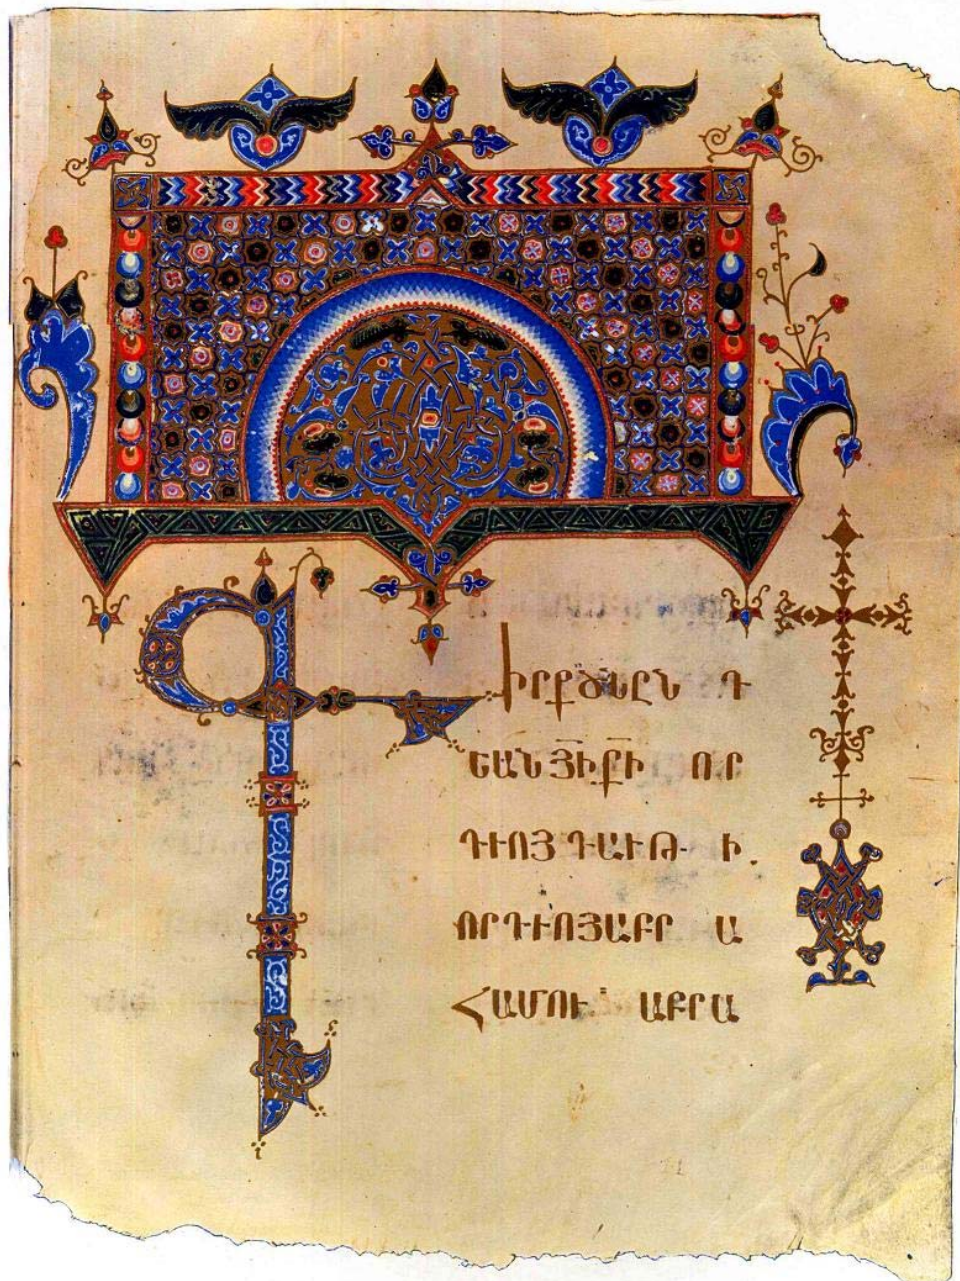 ԳԻՐՔԾՆԸՆ Դ
ԵԱՆ ՅԻՔԻ ՈՐ
ԴՒՈՅ ԴԱՒԹ Ի.
ՈՐԴՒՈՅԱԲՐ Ա
ՀԱՄՈՒ՛՛ ԱԲՐԱ